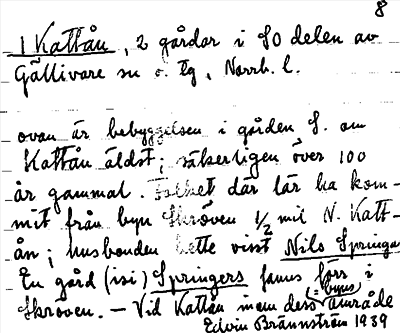 8
1 Kattån, 2 gårdar i SO delen av
Gällivare sn o. tg, Norrb. l.
ovan är bebyggelsen i gården S. om
Kattån äldst; säkerligen över 100
år gammal. Folket där lär ha kom-
mit från byn Skröven 1/2 mil N. Katt-
ån; husbonden hette visst Nils Springare
En gård (isi) Springers fanns förr i
Skröven. — Vid Kattån inom dess (= byns) område
Edvin Brännström 1939